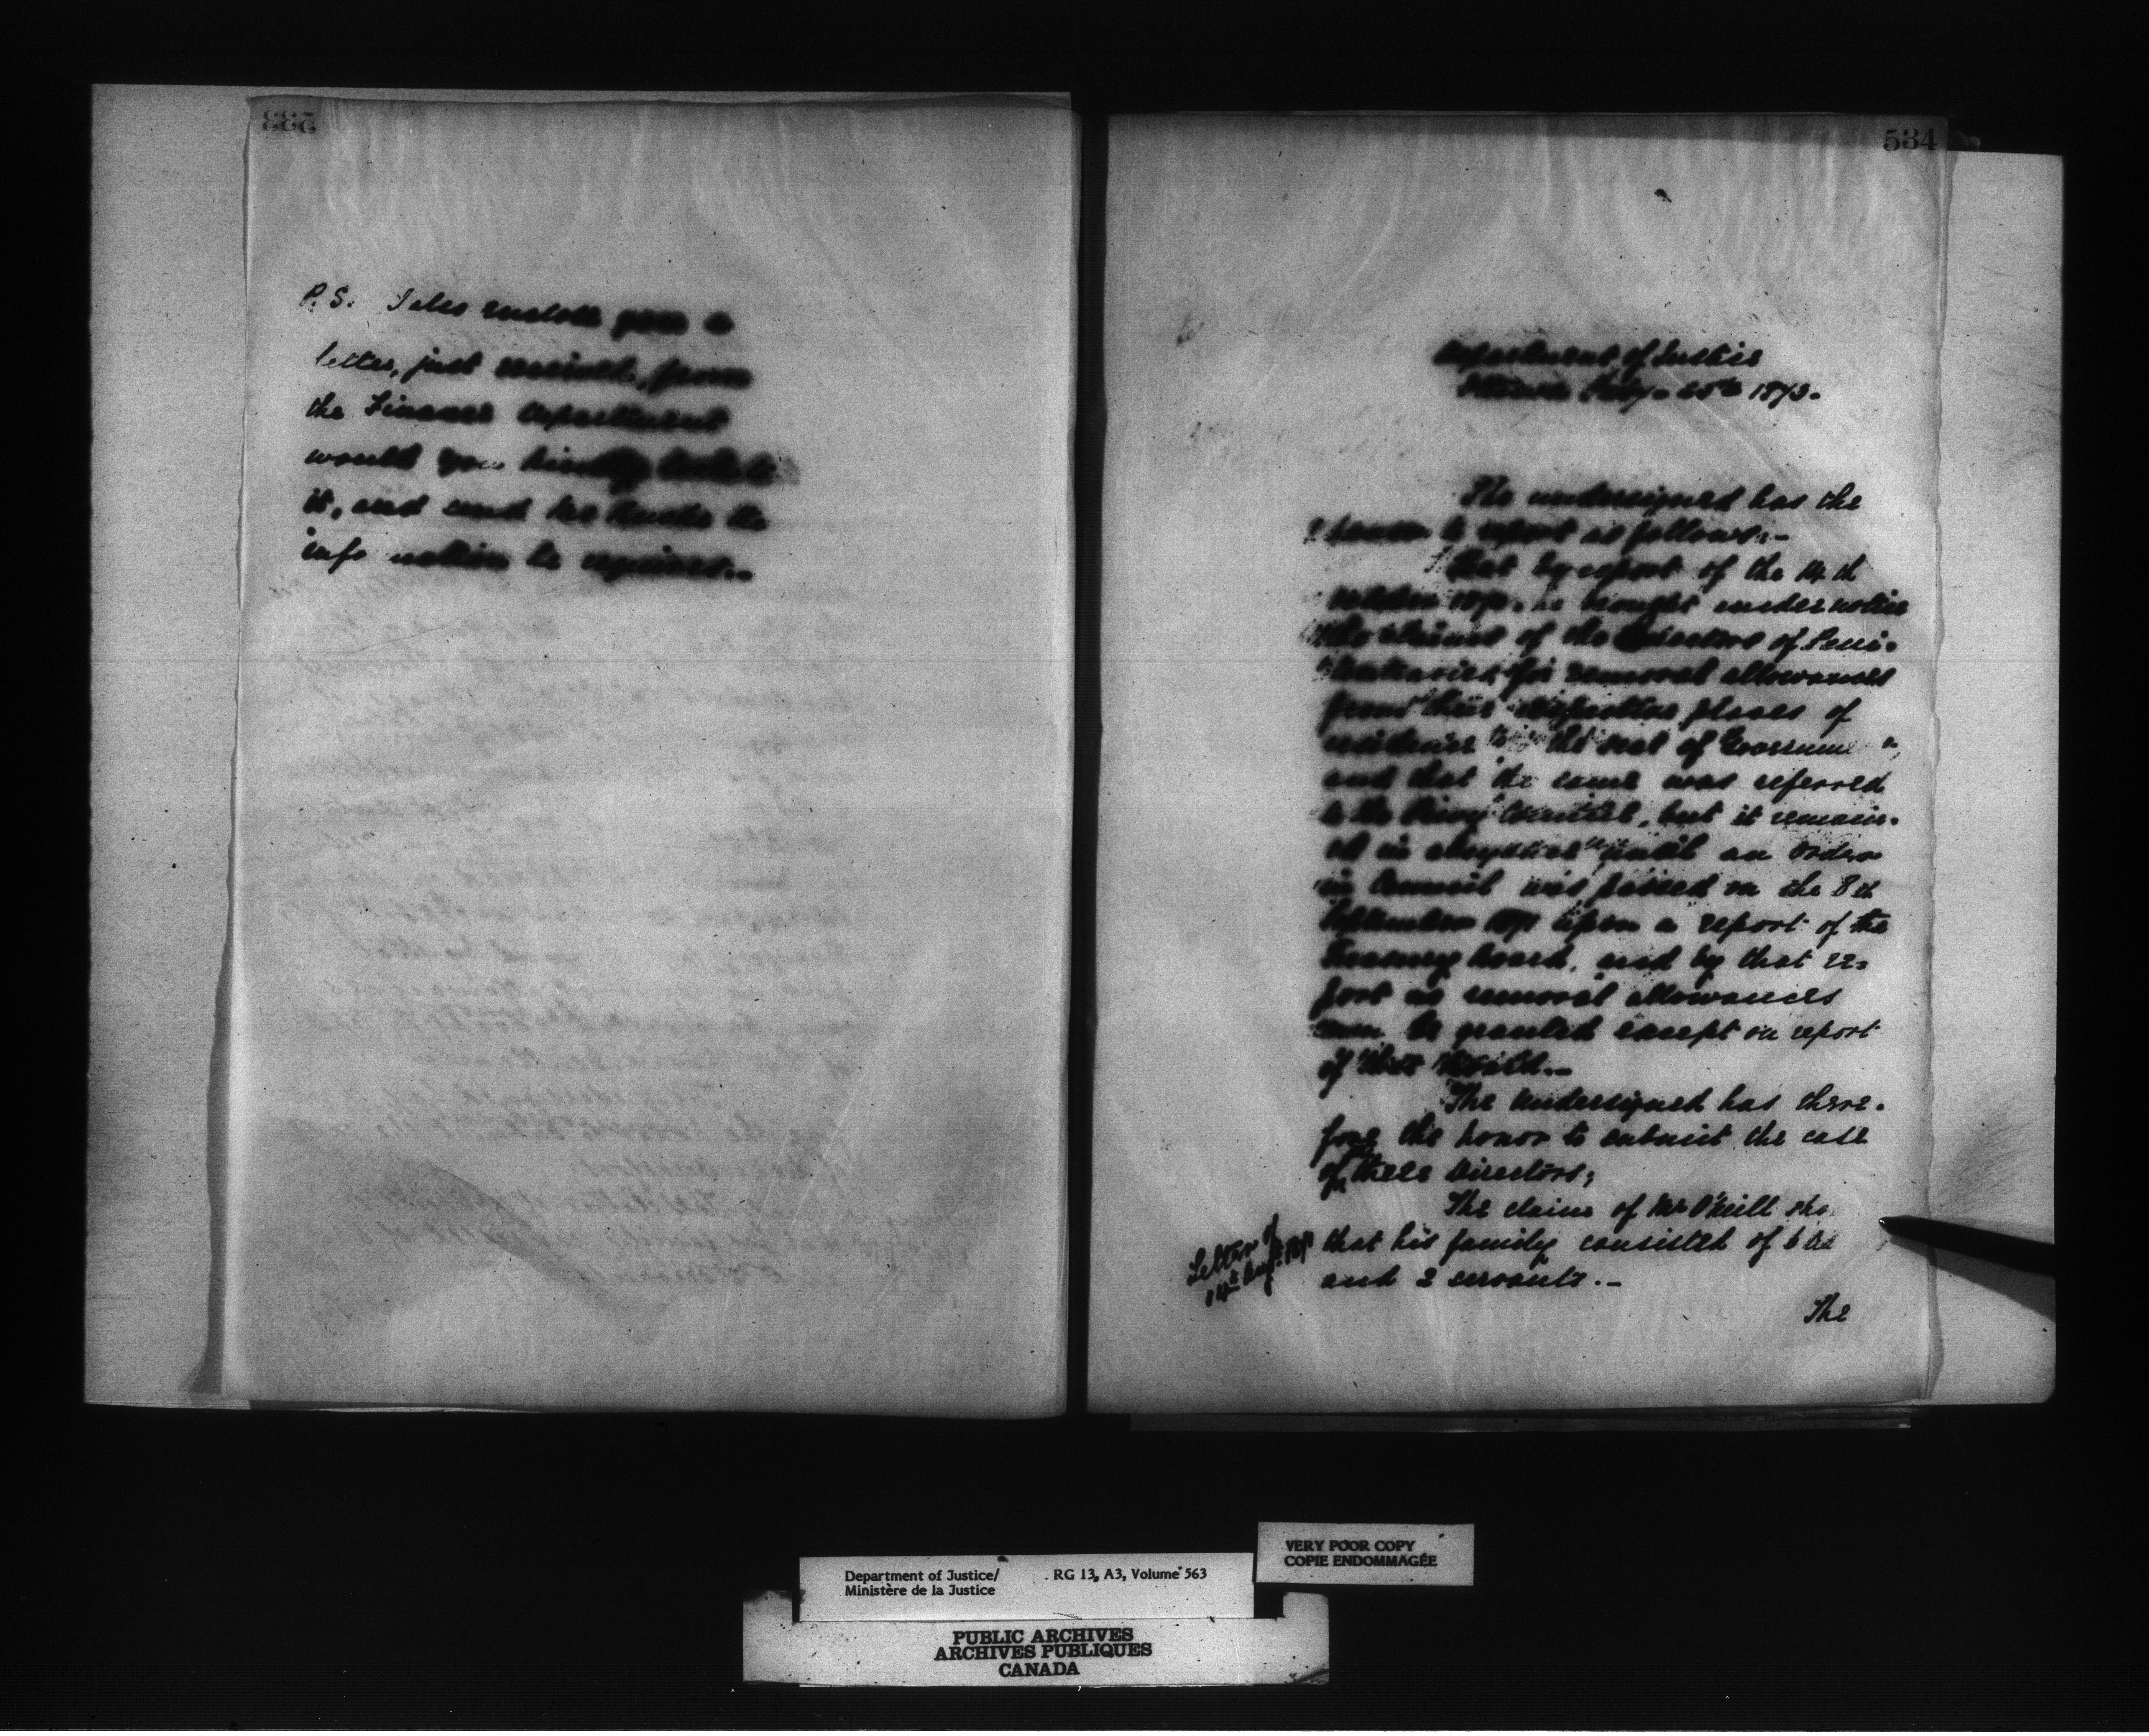 533
P.S. I also enclose you a
letter, just received, from
the Finance Department
would you kindly look to
it, and send the
information he requires.
534
Department of Justice
Ottawa Feby. 25th 1873.
The undersigned has the
honor to report as follows:-
That by report of the 14th
October 1870. he brought under notice
the claims of the Directors of Peni-
tentiaries for removal allowances
from their respective places of
residence to the seat of Governme
and that the same was referred
to the Privy Council, but it remain-
ed in abeyance until an Order
in Council was passed on the 8th
September 1871 upon a report of the
Treasury Board, and by that re-
port no removal allowances
can be granted except on report
of that Board.-
The undersigned has there-
fore the honor to submit the case
of these Directors;
The claim of Mr O'Neill sho
Letter of
14th Augt 1871
that his family consisted of 6
and 2 servants.-
The
VERY POOR COPY
COPIE ENDOMMAGÉE
Department of Justice/ RG 13, A3, Volume 563
Ministère de la Justice
PUBLIC ARCHIVES
ARCHIVES PUBLIQUES
CANADA